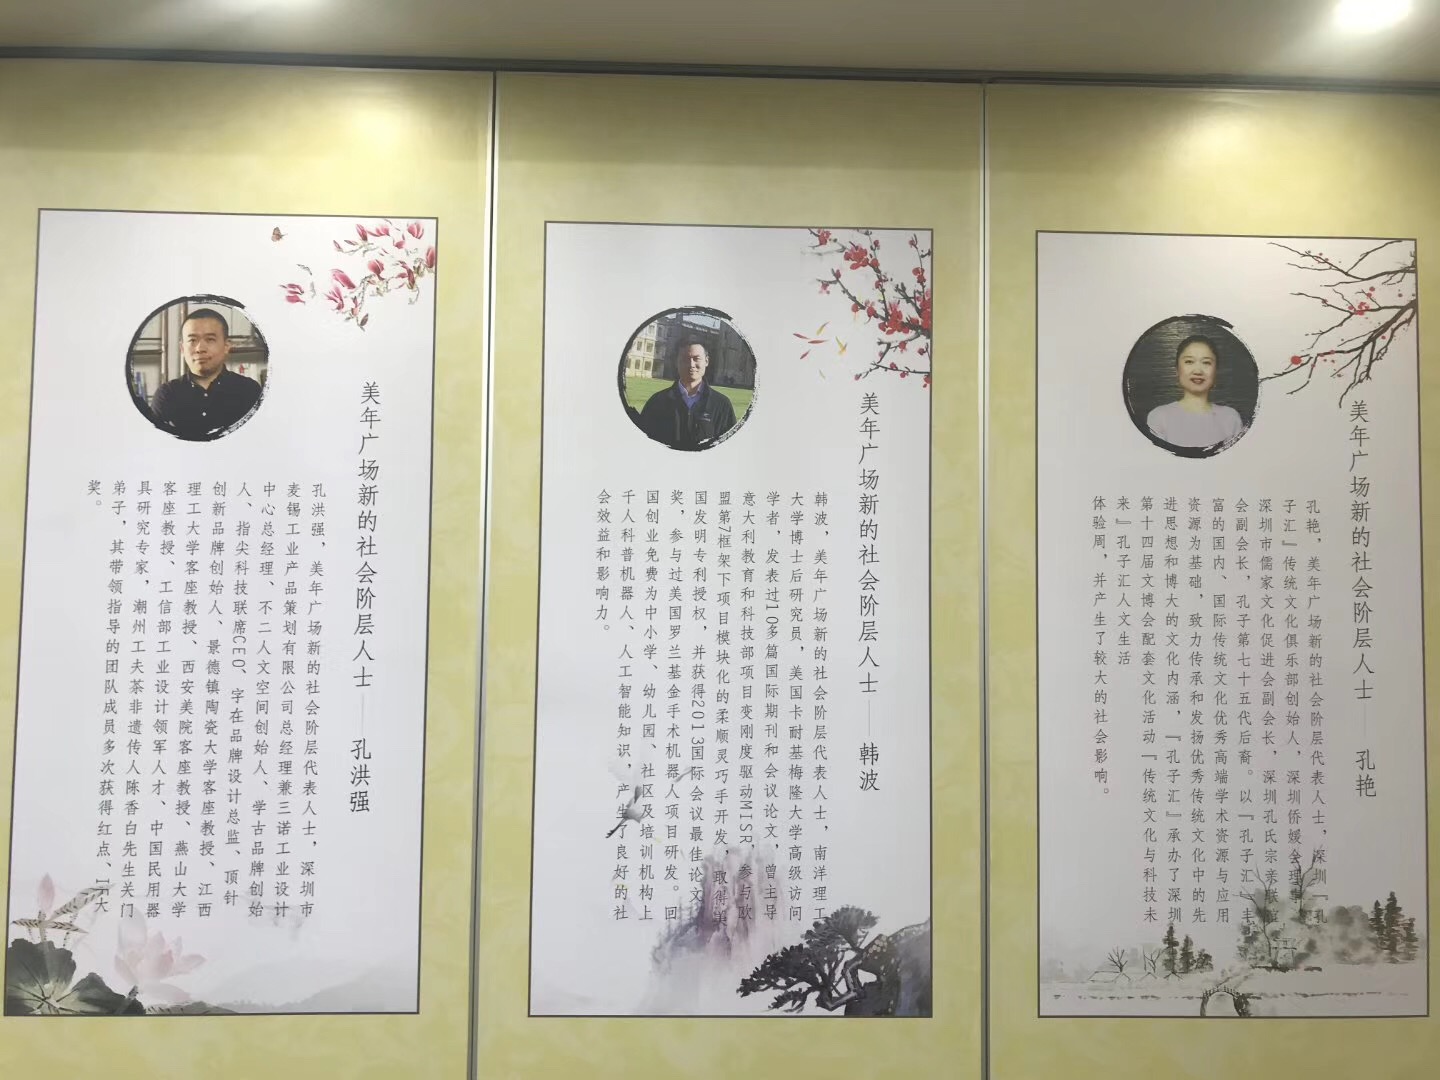 美年广场新的社会阶层人士——孔洪强
孔洪强，美年广场新的社会阶层代表人士，深圳市
麦锡工业产品策划有限公司总经理兼三诺工业设计
中心总经理、不二人文空间创始人、学古品牌创始
人、指尖科技联席CEO、字在品牌设计总监、顶针
创新品牌创始人、景德镇陶瓷大学客座教授、江西
理工大学客座教授、西安美院客座教授、燕山大学
客座教授、工信部工业设计领军人才、中国民用器
具研究专家，潮州工夫茶非遗传人陈香白先生关门
弟子，其带领指导的团队成员多次获得红点、IF大
奖。
美年广场新的社会阶层人士——韩波
韩波，美年广场新的社会阶层代表人士，南洋理工
大学博士后研究员，美国卡耐基梅隆大学高级访问
学者，发表过10多篇国际期刊和会议论文，曾主导
意大利教育和科技部项目变刚度驱动MISR，参与欧
盟第7框架下项目模块化的柔顺灵巧手开发，取得美
国发明专利授权，并获得2013国际会议最佳论文
奖，参与过美国罗兰基金手术机器人项目研发。回
国创业免费为中小学、幼儿园、社区及培训机构上
千人科普机器人、人工智能知识，产生了良好的社
会效益和影响力。
美年广场新的社会阶层人士——孔艳
孔艳，美年广场新的社会阶层代表人士，深圳『孔
子汇』传统文化俱乐部创始人，深圳侨媛会理事，
深圳市儒家文化促进会副会长，深圳孔氏宗亲联谊
会副会长，孔子第七十五代后裔。以『孔子汇』丰
富的国内、国际传统文化优秀高端学术资源与应用
资源为基础，致力传承和发扬优秀传统文化中的先
进思想和博大的文化内涵，『孔子汇』承办了深圳
第十四届文博会配套文化活动『传统文化与科技未
来』孔子汇人文生活
体验周，并产生了较大的社会影响。